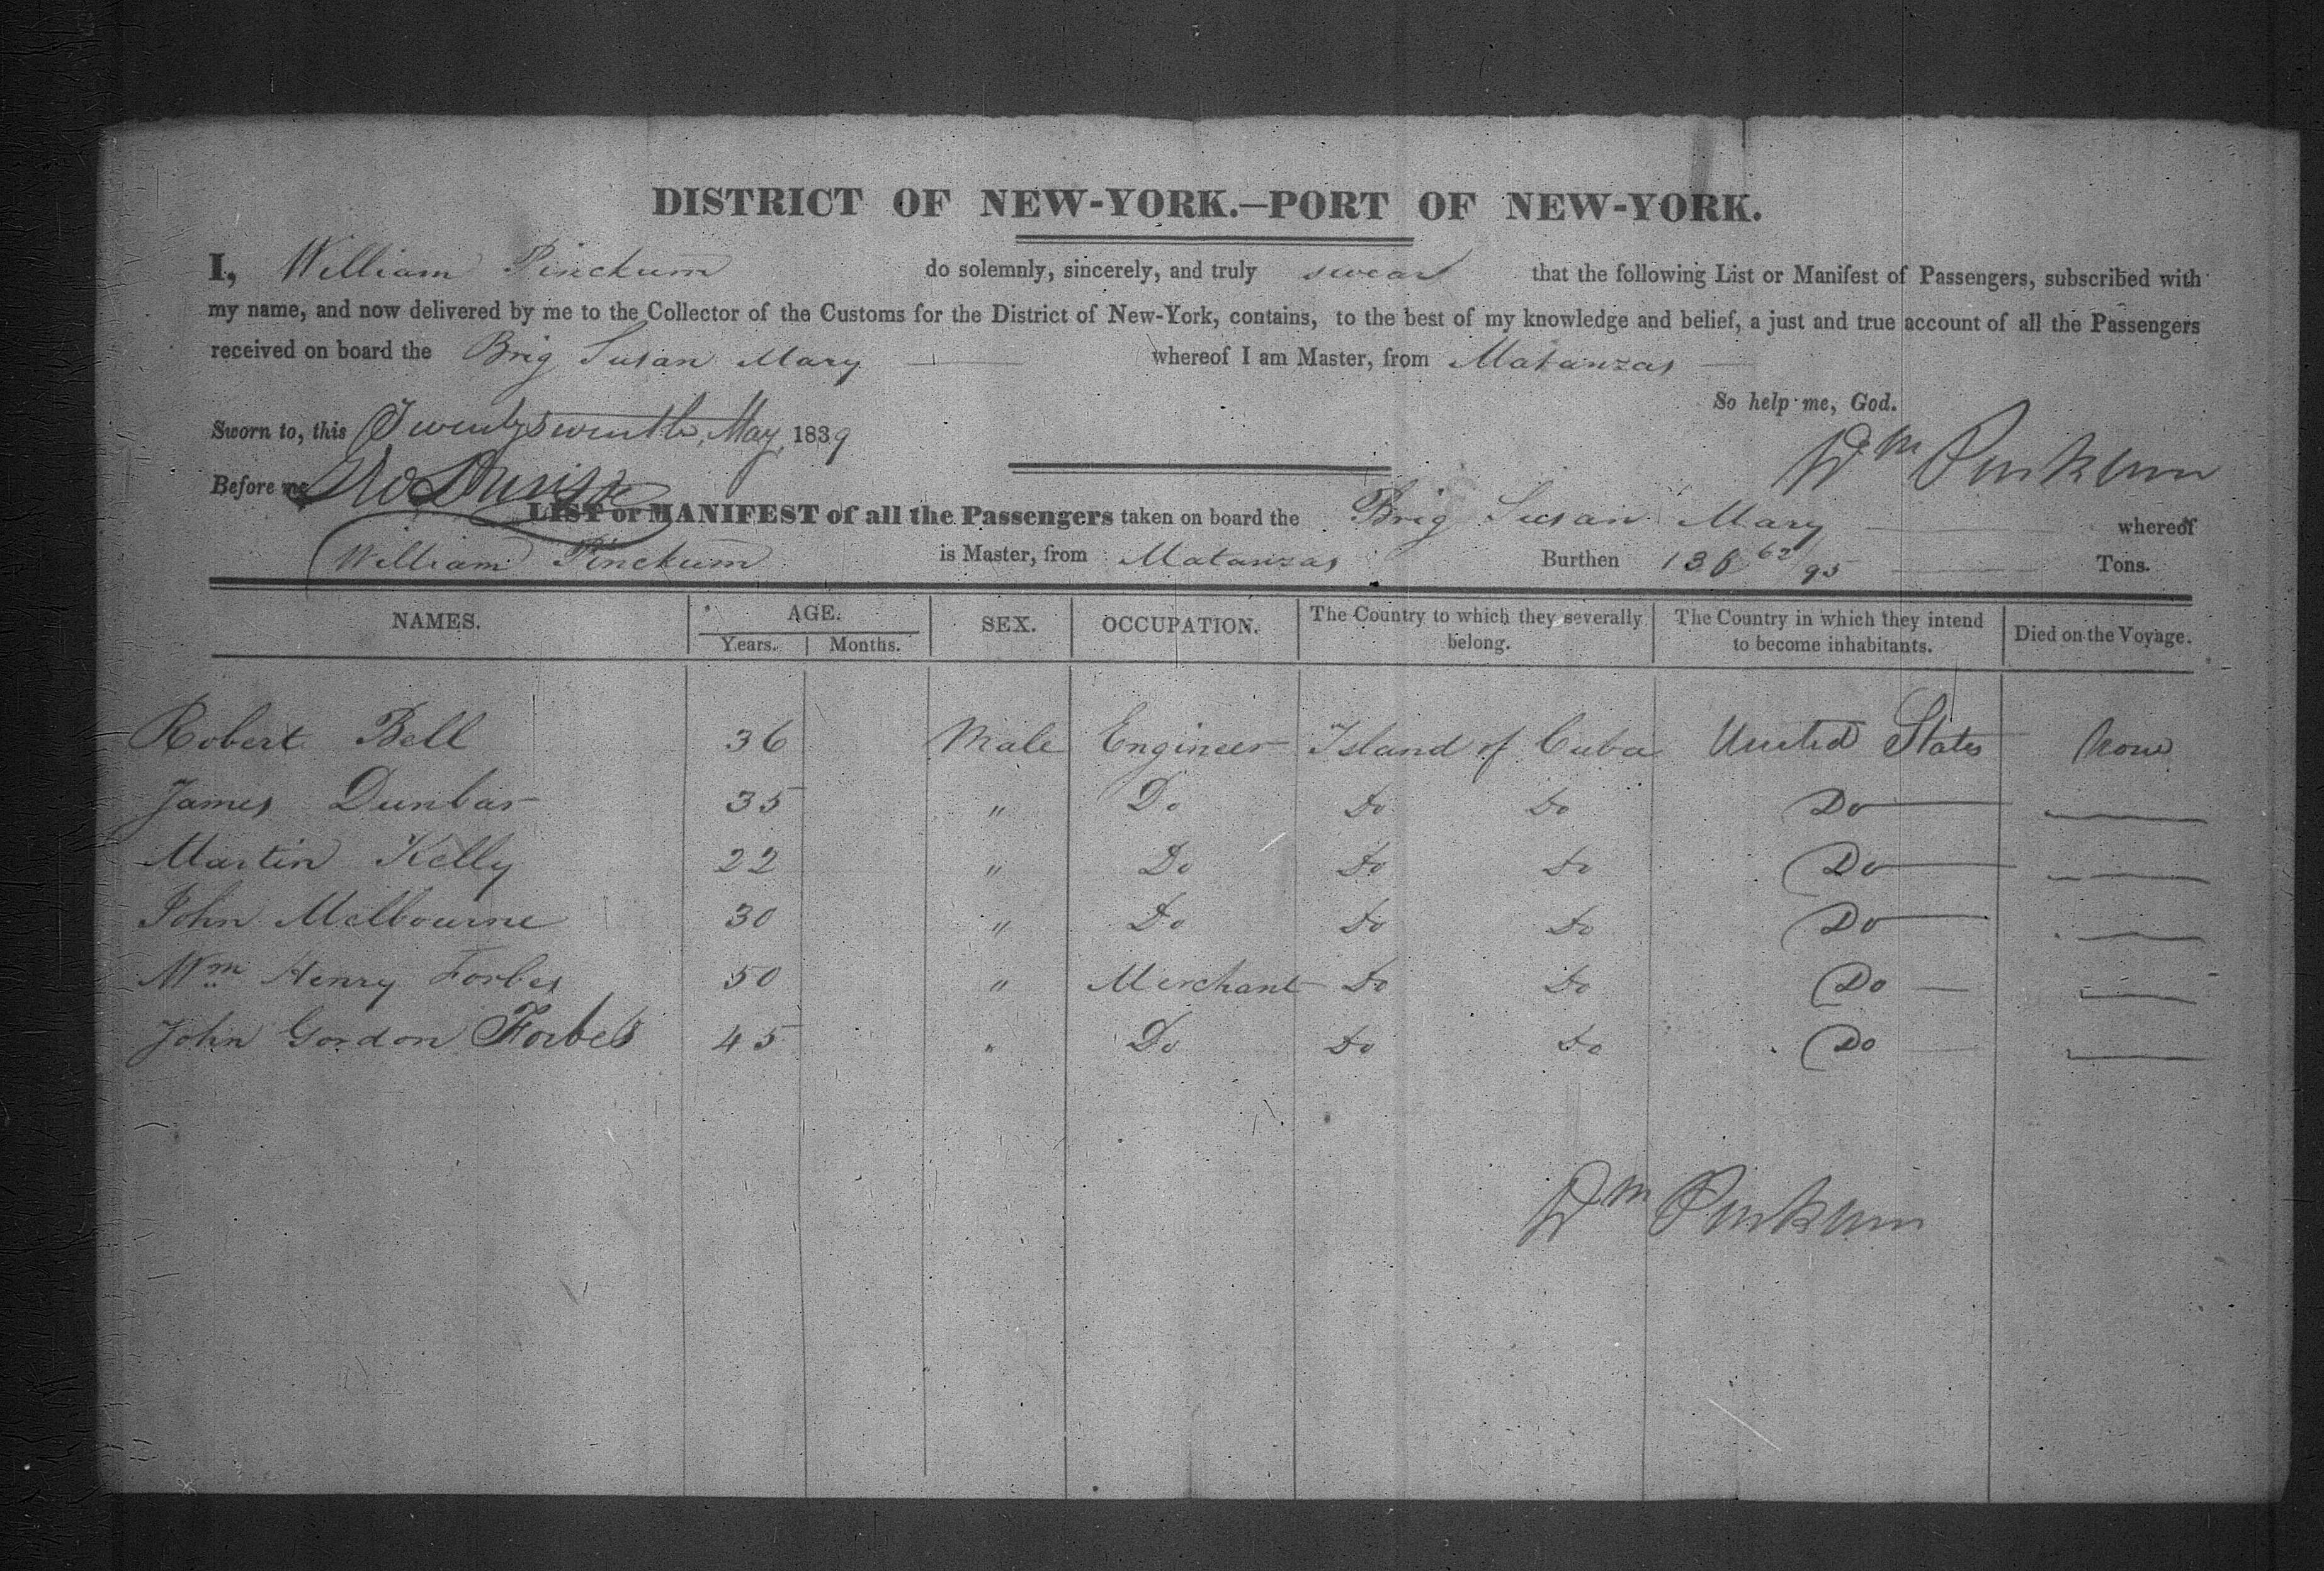 DISTRICT OF NEW-YORK.—PORT OF NEW-YORK.
I, William Pinckum do solemnly, sincerely, and truly swear that the following List or Manifest of Passengers, subscribed with
my name, and now delivered by me to the Collector of the Customs for the District of New-York, contains, to the best of my knowledge and belief, a just and true account of all the Passengers
received on board the Brig Susan Mary whereof I am Master, from Matanzas
So help me, God.
Sworn to, this Twenty seventh, May, 1839
Wm Pinkum
Before me
LIST or MANIFEST of all the Passengers taken on board the Brig Susan Mary whereof
William Pinckum is Master, from Matanzas Burthen 136 62/95 Tons.
NAMES. AGE. SEX. OCCUPATION. The Country to which they severally belong. The Country in which they intend to become inhabitants. Died on the Voyage.
Years. Months.
Robert Bell 36 Male Engineer Island of Cuba United States None
James Dunbar 35 " Do Do Do Do
Martin Kelly 22 " Do Do Do Do
John Melbourne 30 " Do Do Do Do
Wm Henry Forbes 50 " Merchant Do Do Do
John Gordon Forbes 45 " Do Do Do Do
Wm Pinkum